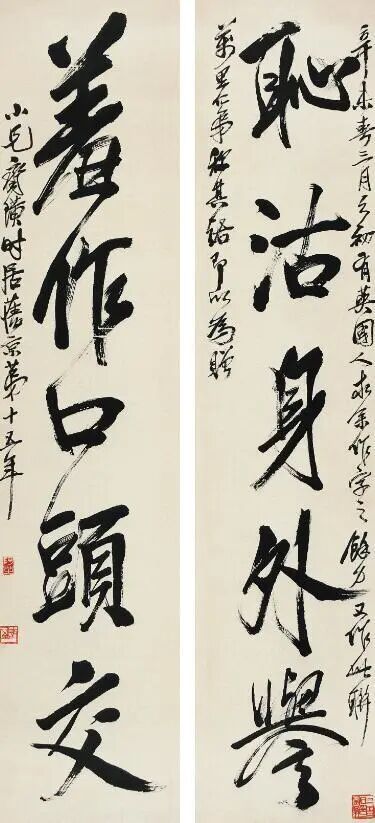 辛未春三月之初有英國人求余作字之餘力又作此聯
恥沽身外譽
萬里仁弟
其語即以為贈
羞作口頭交
小兄齊璜時居舊京第十五年